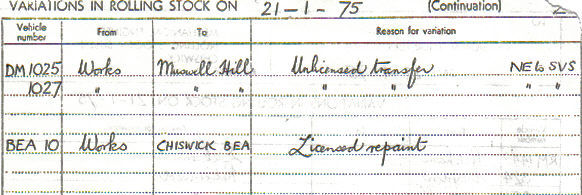 VARIATIONS IN ROLLING STOCK ON 21-1-75 (Continuation)
Vehicle number From To Reason for variation
DM1025 Works Muswell Hill Unlicensed transfer NE to SVS
1027 " " " " " " "
BEA 10 Works CHISWICK BEA Licensed repaint